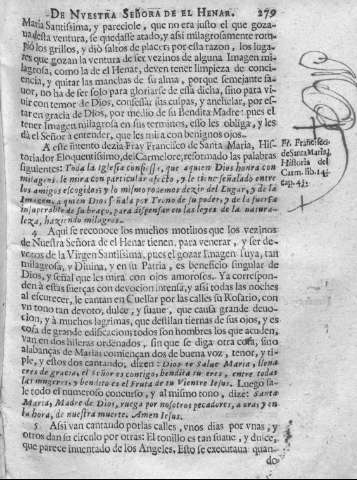 DE NVESTRA SEÑORA DE EL HENAR. 279
Maria Santissima, y pareciole, que no era justo el que goza-
ua desta ventura, se quedasse atado, y assi milagrosamente rom-
piò los grillos, y diò saltos de placer: por esta razon, los luga-
res que gozan la ventura de ser vezinos de alguna Imagen mi-
lagrosa, como la de el Henar, deven tener limpieza de concien-
cia, y quitar las manchas de su alma, porque semejante fa-
uor, no ha de ser solo para gloriarse desta dicha, sino para vi-
uir con temor de Dios, confessar sus culpas, y anchelar, por es-
tar en gracia de Dios, por medio de su Bendita Madre: pues el
tener Imagen milagrosa en sus terminos, esso les obliga, y les
dà el Señor à entender, que les mira con benignos ojos.
A este intento dezia Fray Francisco de Santa Maria, His-
toriador Eloquentissimo, del Carmelo reformado las palabras
siguientes: Toda la Iglesia confiesse, que à quien Dios honra con
milagros, le mira con particular afecto, y le tiene señalado entre
los amigos escogidos: y lo mismo podemos dezir del Lugar, y de la
Imagen, à quien Dios señala por Trono de su poder, y de la fuerza
insuperable de su braço, para dispensar en las leyes de la natura-
leza, haziendo milagros.
Fr. Francisco
de Santa Maria,
Historia del
Carm. lib. 14.
cap. 43.
4 Aqui se reconoce los muchos motiuos que los vezinos
de Nuestra Señora de el Henar tienen, para venerar, y ser de-
votos de la Virgen Santissima, pues el gozar Imagen suya, tan
milagrosa, y Diuina, y en su Patria, es beneficio singular de
Dios, y señal que les mira con ojos amorosos. Ya correspon-
den à estas fuerças con devocion intensa, y assi todas las noches
al escurecer, le cantan en Cuellar por las calles su Rosario, con
vn tono tan devoto, dulce, y suaue, que causa grande deuo-
cion, y à muchos lagrimas, que destilan tiernas de sus ojos, y es
cosa de grande edificacion: todos son hombres los que acuden,
van en dos hileras ordenados, sin que se diga otra cosa, sino
alabanças de Maria: comiençan dos de buena voz, tenor, y ti-
ple, y estos dos cantando, dizen: Dios te Salue Maria, llena
eres de gracia, el Señor es contigo, bendita tu eres, entre todas
las mugeres, y bendito es el Fruto de tu Vientre Iesus. Luego sa-
le todo el numeroso concurso, y al mismo tono, dize: Santa
Maria, Madre de Dios, ruega por nosotros pecadores, aora, y en
la hora, de nuestra muerte. Amen Iesus.
5 Assi van cantando por las calles, vnos dias por vnas, y
otros dan su circulo por otras: El tonillo es tan suaue, y dulce,
que parece inuentado de los Angeles. Esto se executaua quan-
do